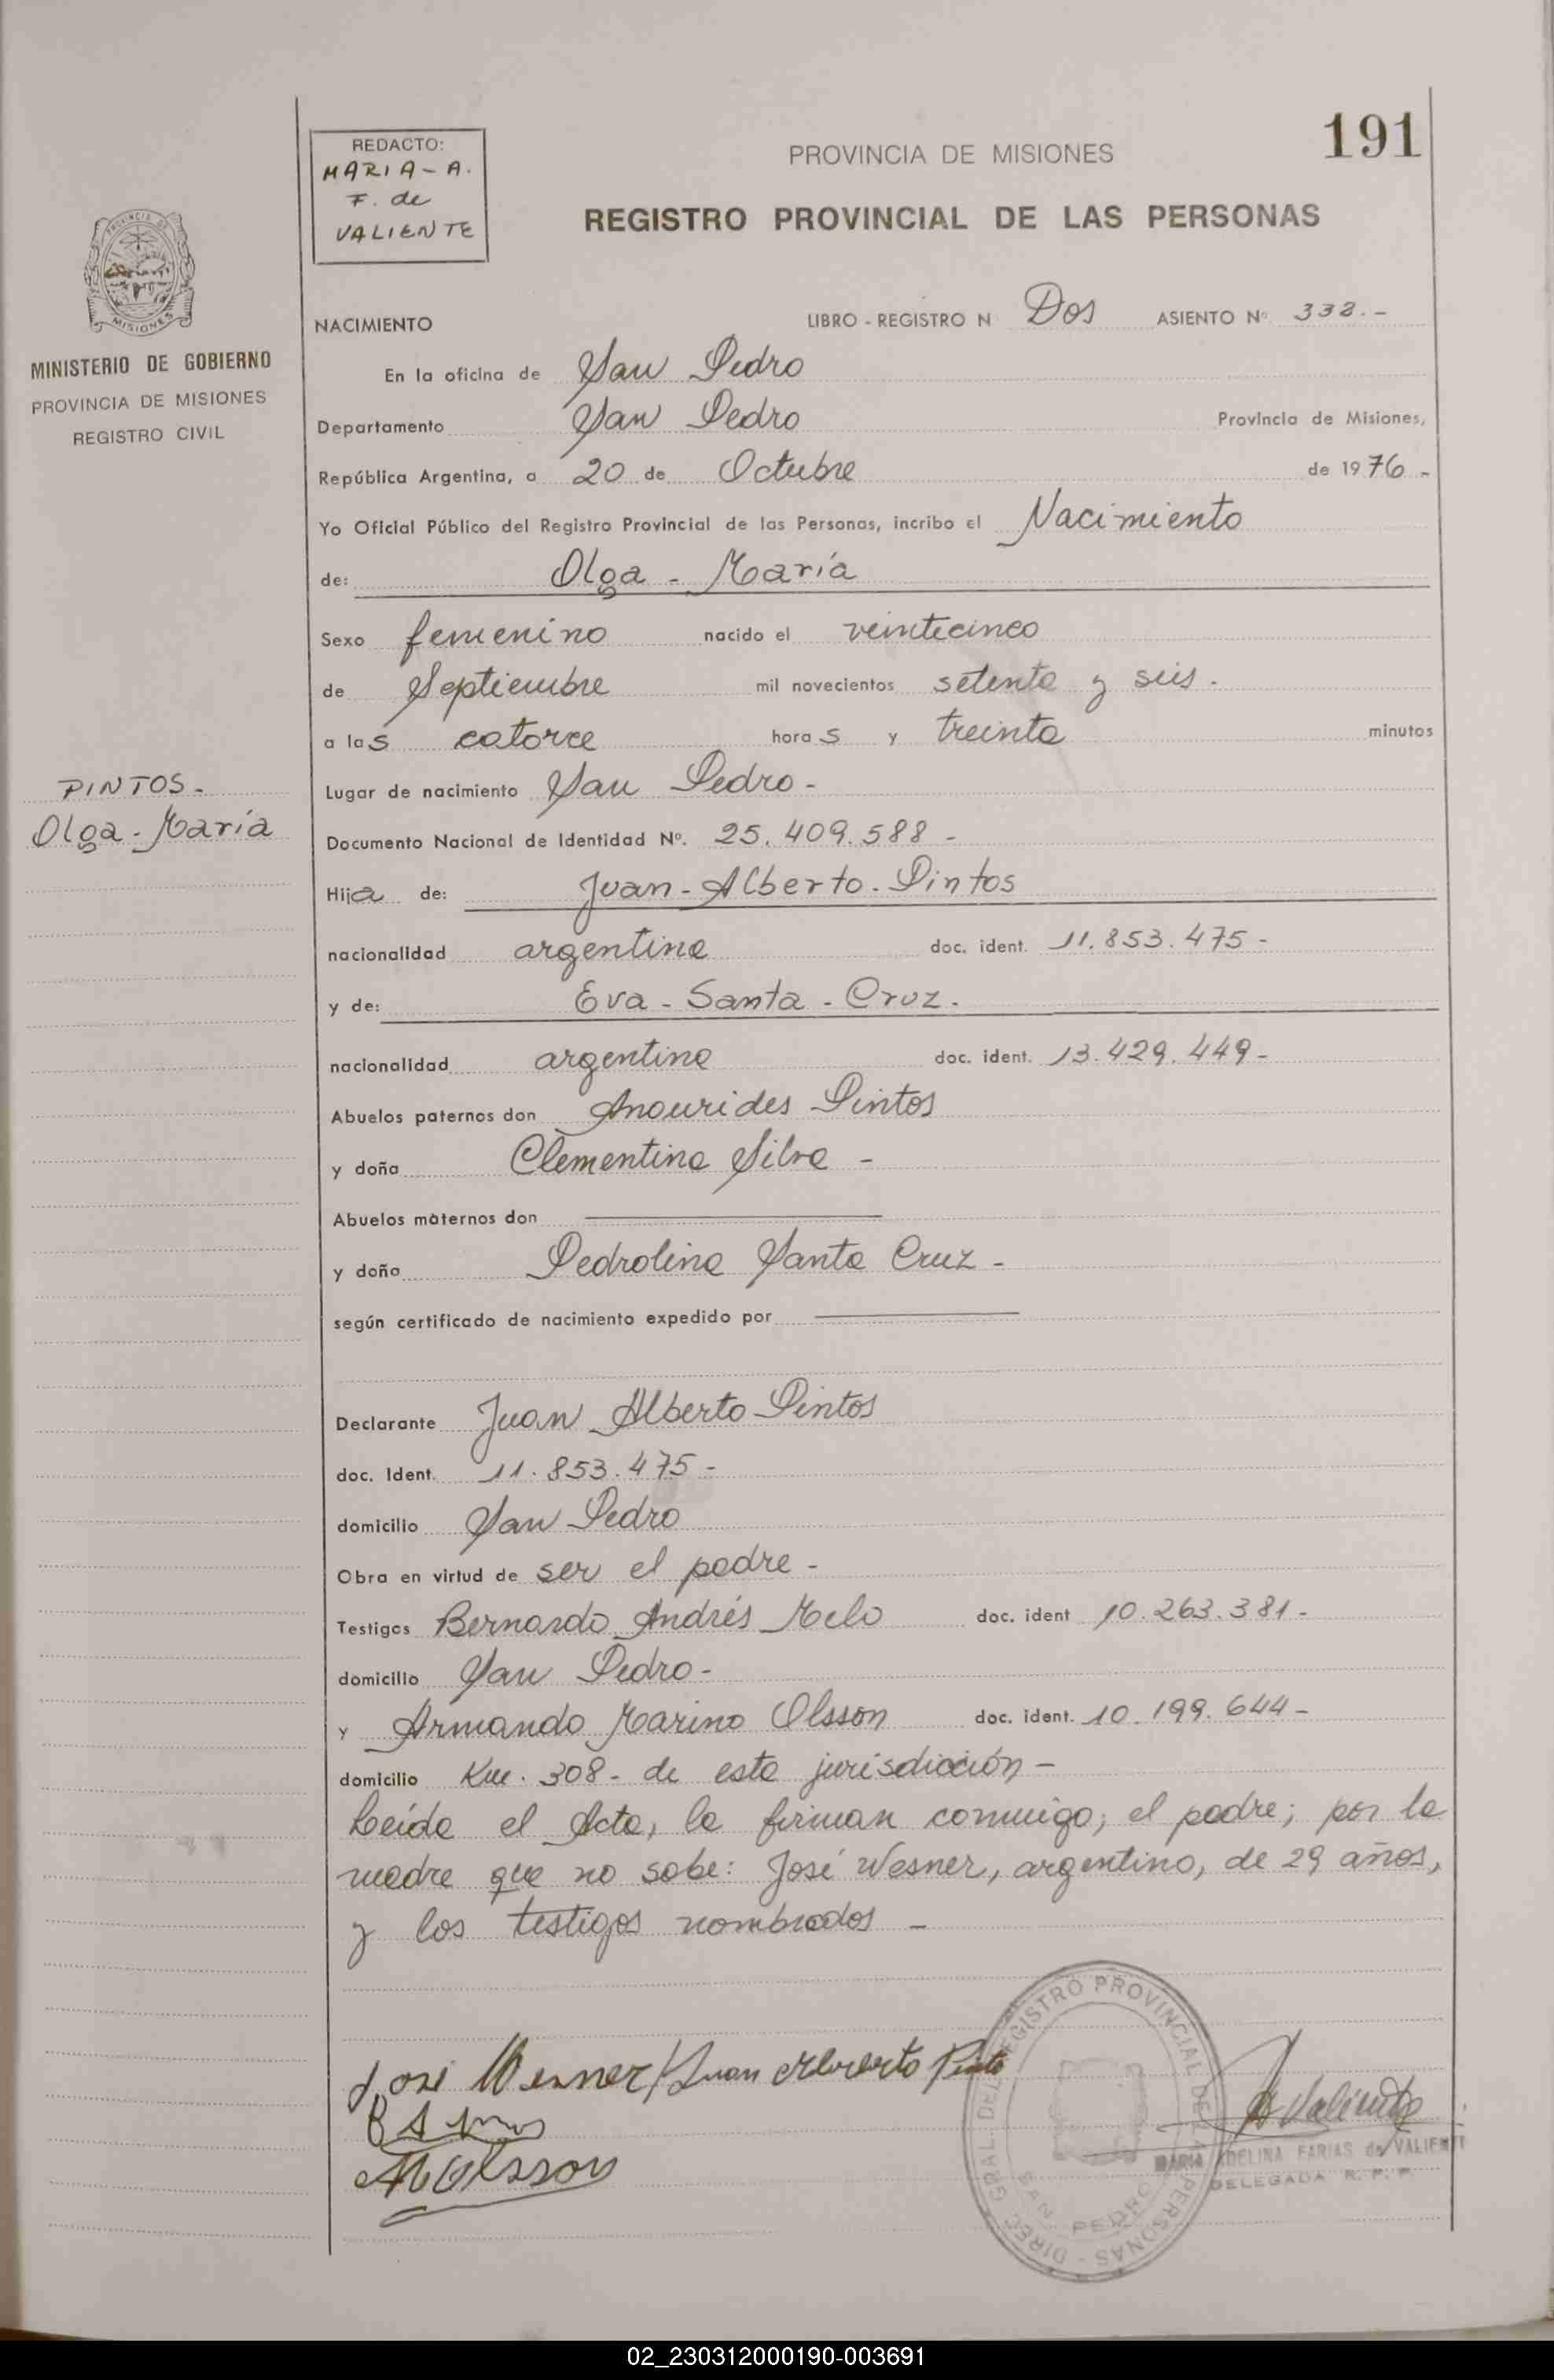 191
REDACTO:
MARIA - A.
F. de
VALIENTE
PROVINCIA DE MISIONES
REGISTRO PROVINCIAL DE LAS PERSONAS
MISIONES
MINISTERIO DE GOBIERNO
PROVINCIA DE MISIONES
REGISTRO CIVIL
NACIMIENTO LIBRO - REGISTRO N Dos ASIENTO Nº 332.-
En la oficina de San Pedro
Departamento San Pedro Provincia de Misiones,
República Argentina, a 20 de Octubre de 1976 -
Yo Oficial Público del Registro Provincial de las Personas, incribo el Nacimiento
de: Olga - María
Sexo femenino nacido el veinticinco
de Septiembre mil novecientos setenta y seis.
a las catorce horas y treinta minutos
PINTOS -
Olga - María
Lugar de nacimiento San Pedro -
Documento Nacional de Identidad Nº. 25.409.588 -
Hija de: Juan - Alberto - Pintos
nacionalidad argentina doc. ident. 11.853.475 -
y de: Eva - Santa - Cruz.
nacionalidad argentina doc. ident. 13.429.449 -
Abuelos paternos don Anourides Pintos
y doña Clementina Silva -
Abuelos maternos don
y doña Pedrolina Santa Cruz -
según certificado de nacimiento expedido por
Declarante Juan Alberto Pintos
doc. Ident. 11.853.475 -
domicilio San Pedro
Obra en virtud de ser el padre -
Testigos Bernardo Andrés Melo doc. ident 10.263.381 -
domicilio San Pedro -
y Armando Marino Olsson doc. ident. 10.199.644 -
domicilio Km. 308 - de esta jurisdicción -
Leída el Acta, la firman conmigo; el padre; por la
madre que no sabe: José Wesner, argentino, de 29 años,
y los testigos nombrados -
José Wesner Juan Alberto Pinto
A M Olsson
DIREC. GRAL. DEL REGISTRO PROVINCIAL DE LAS PERSONAS
SAN PEDRO
A Valiente
MARIA ADELINA FARIAS de VALIENTE
DELEGADA R. P. P.
02_230312000190-003691